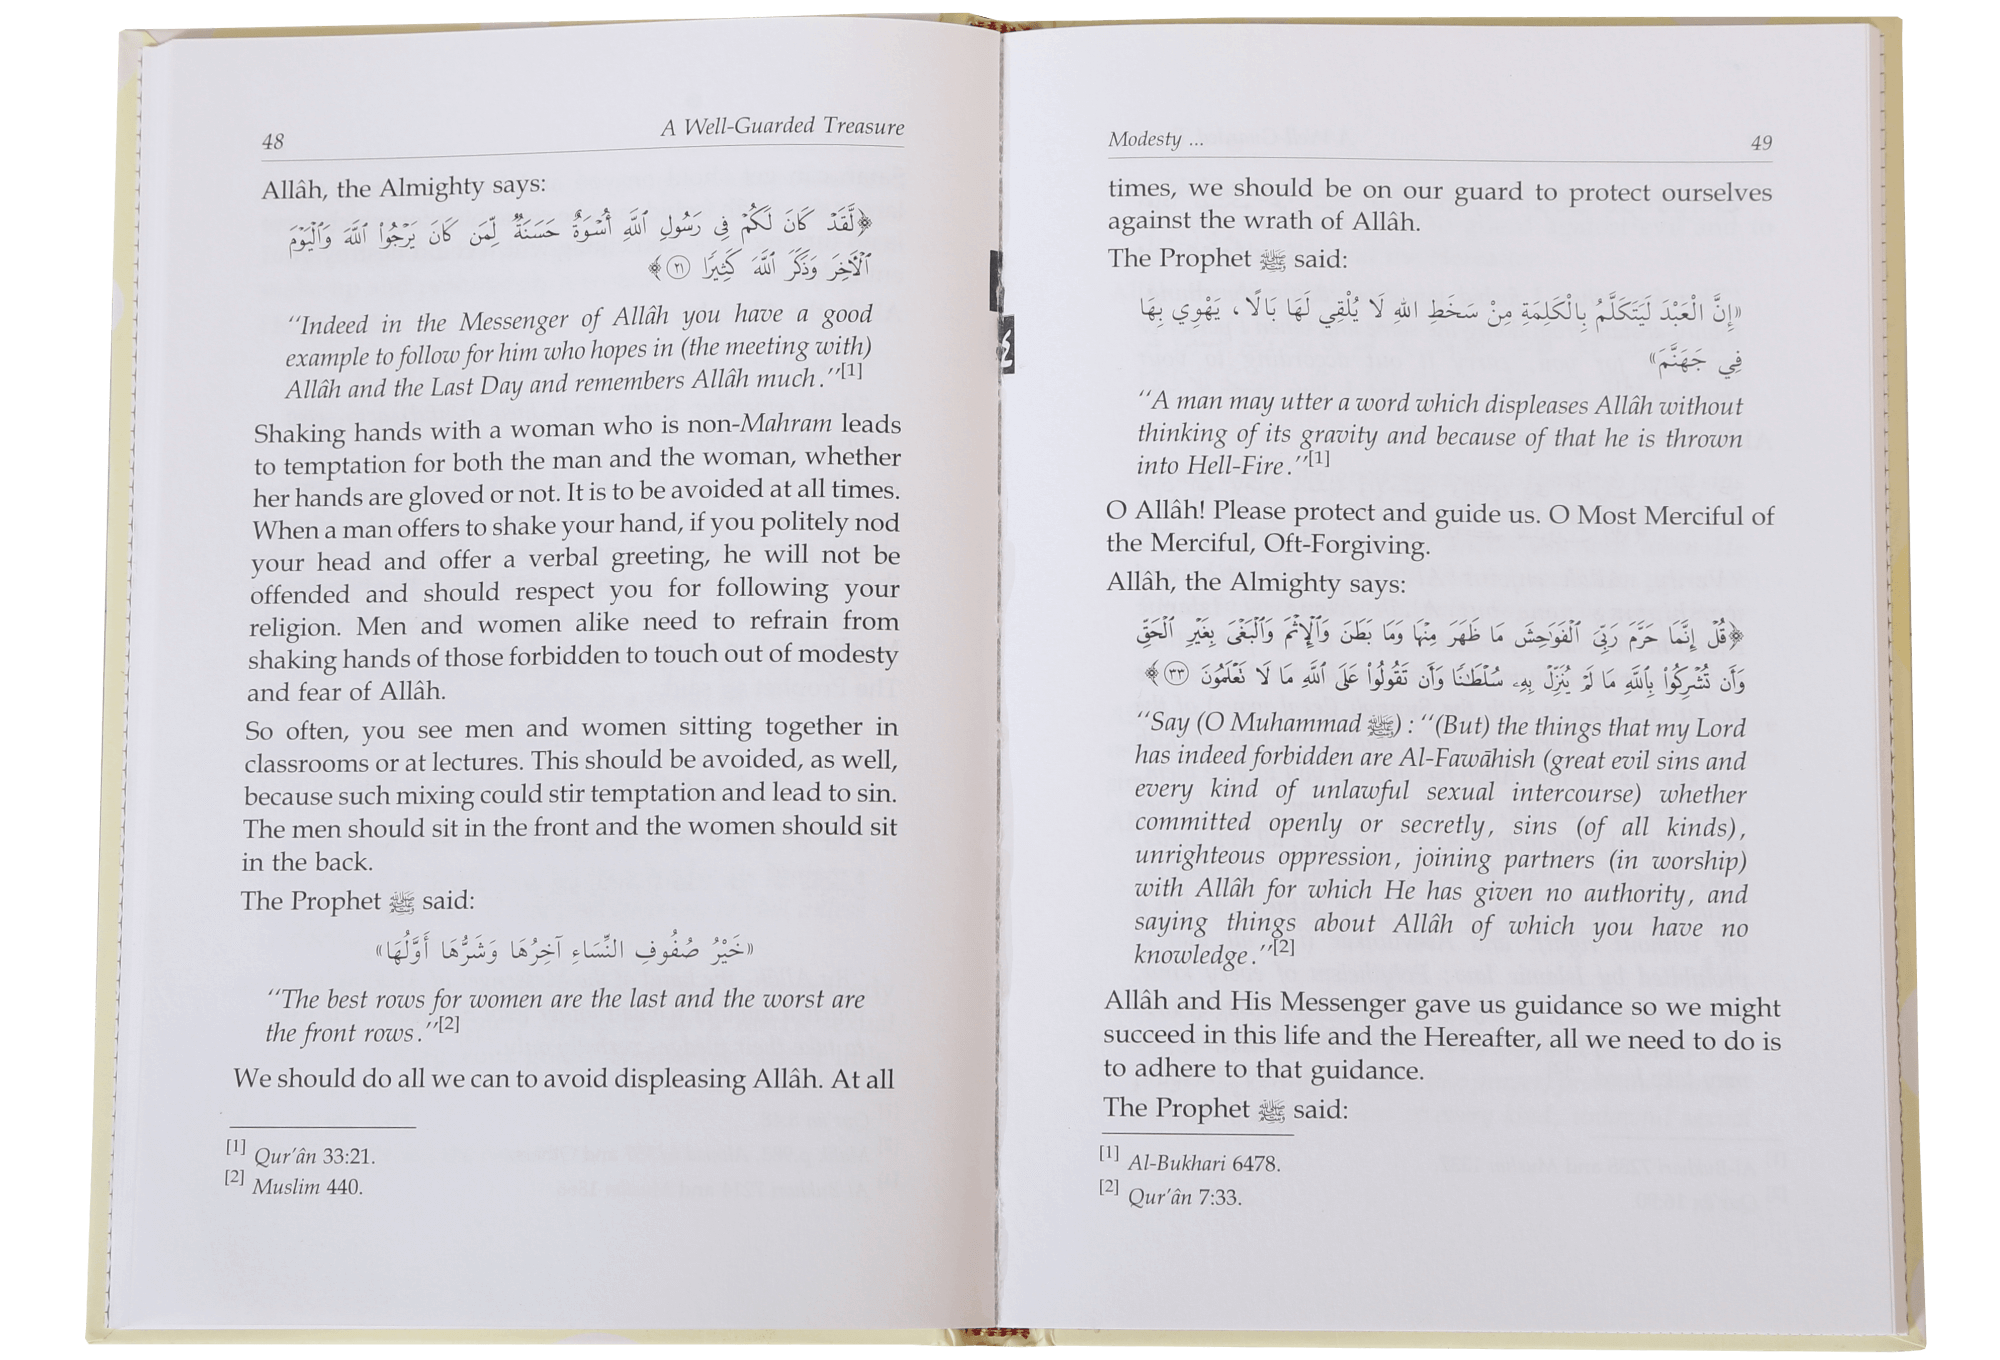 48
A Well-Guarded Treasure
Allâh, the Almighty says:
﴿لَّقَدْ كَانَ لَكُمْ فِي رَسُولِ ٱللَّهِ أُسْوَةٌ حَسَنَةٌ لِّمَن كَانَ يَرْجُوا۟ ٱللَّهَ وَٱلْيَوْمَ
ٱلْآخِرَ وَذَكَرَ ٱللَّهَ كَثِيرًا ٢١﴾
''Indeed in the Messenger of Allâh you have a good
example to follow for him who hopes in (the meeting with)
Allâh and the Last Day and remembers Allâh much.''[1]
Shaking hands with a woman who is non-Mahram leads
to temptation for both the man and the woman, whether
her hands are gloved or not. It is to be avoided at all times.
When a man offers to shake your hand, if you politely nod
your head and offer a verbal greeting, he will not be
offended and should respect you for following your
religion. Men and women alike need to refrain from
shaking hands of those forbidden to touch out of modesty
and fear of Allâh.
So often, you see men and women sitting together in
classrooms or at lectures. This should be avoided, as well,
because such mixing could stir temptation and lead to sin.
The men should sit in the front and the women should sit
in the back.
The Prophet ﷺ said:
«خَيْرُ صُفُوفِ النِّسَاءِ آخِرُهَا وَشَرُّهَا أَوَّلُهَا»
''The best rows for women are the last and the worst are
the front rows.''[2]
We should do all we can to avoid displeasing Allâh. At all
[1] Qur'ân 33:21.
[2] Muslim 440.
Modesty ...
49
times, we should be on our guard to protect ourselves
against the wrath of Allâh.
The Prophet ﷺ said:
«إِنَّ الْعَبْدَ لَيَتَكَلَّمُ بِالْكَلِمَةِ مِنْ سَخَطِ اللهِ لَا يُلْقِي لَهَا بَالًا، يَهْوِي بِهَا
فِي جَهَنَّمَ»
''A man may utter a word which displeases Allâh without
thinking of its gravity and because of that he is thrown
into Hell-Fire.''[1]
O Allâh! Please protect and guide us. O Most Merciful of
the Merciful, Oft-Forgiving.
Allâh, the Almighty says:
﴿قُلْ إِنَّمَا حَرَّمَ رَبِّيَ ٱلْفَوَٰحِشَ مَا ظَهَرَ مِنْهَا وَمَا بَطَنَ وَٱلْإِثْمَ وَٱلْبَغْيَ بِغَيْرِ ٱلْحَقِّ
وَأَن تُشْرِكُوا۟ بِٱللَّهِ مَا لَمْ يُنَزِّلْ بِهِۦ سُلْطَٰنًا وَأَن تَقُولُوا۟ عَلَى ٱللَّهِ مَا لَا تَعْلَمُونَ ٣٣﴾
''Say (O Muhammad ﷺ) : ''(But) the things that my Lord
has indeed forbidden are Al-Fawāhish (great evil sins and
every kind of unlawful sexual intercourse) whether
committed openly or secretly, sins (of all kinds),
unrighteous oppression, joining partners (in worship)
with Allâh for which He has given no authority, and
saying things about Allâh of which you have no
knowledge.''[2]
Allâh and His Messenger gave us guidance so we might
succeed in this life and the Hereafter, all we need to do is
to adhere to that guidance.
The Prophet ﷺ said:
[1] Al-Bukhari 6478.
[2] Qur'ân 7:33.